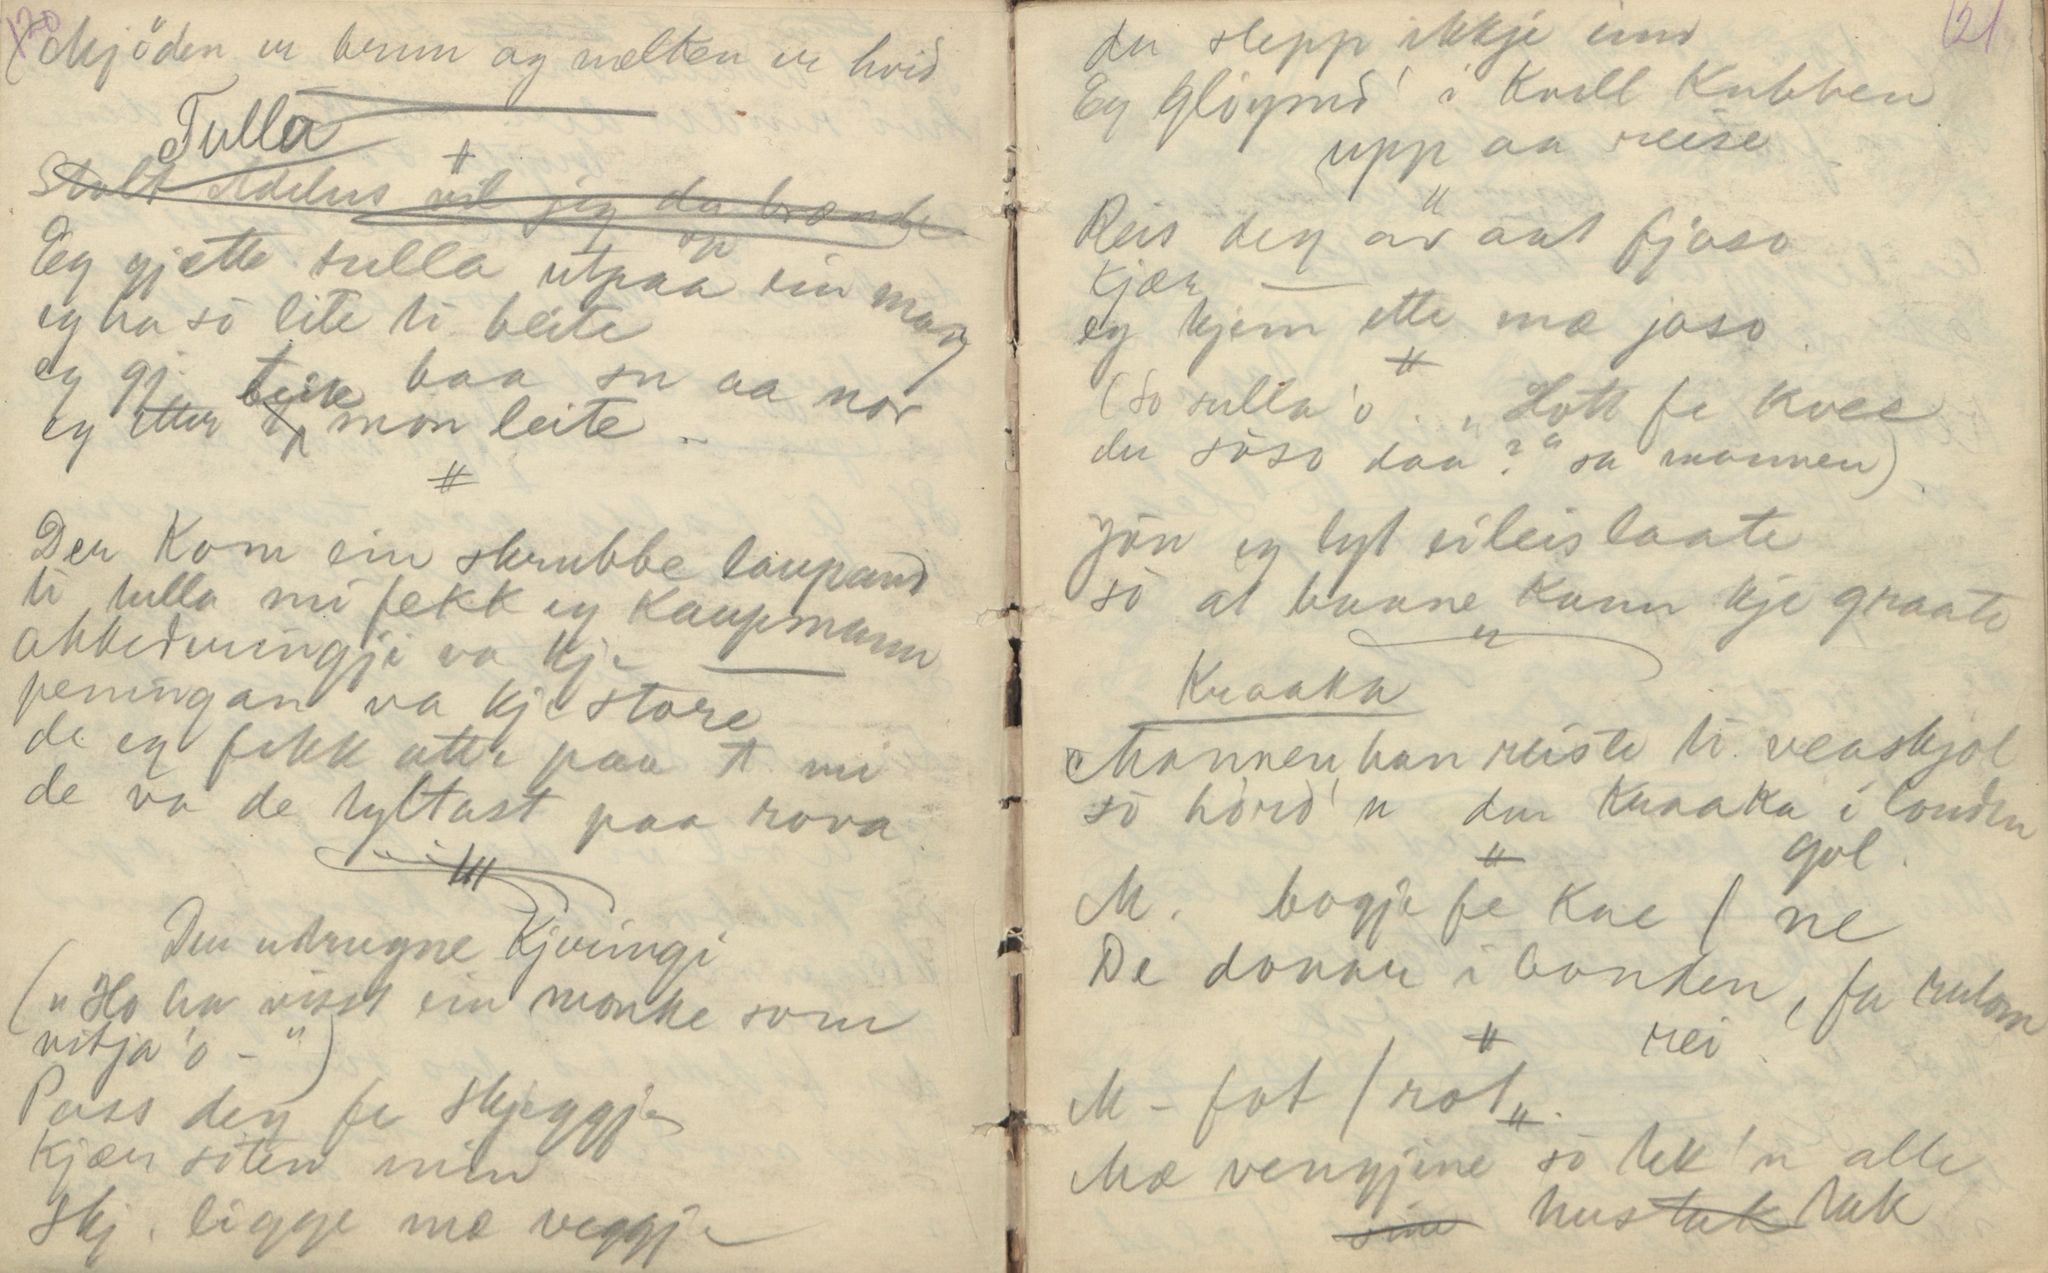 120
Mjöden er brun og melten er hvid
Tulla
Stalt Adelus vil jeg da brænde
op
Eg gjette tulla utpaa ein morg
eg ha so lite ti beite
eg gj. baa sn aa nor
eg etter teik mon leite
#
Der kom ein skrubbe laupand
ti tulla mi fekk eg kaupmann
va kje
peningan va kje store
de eg fekk atte paa t. mi
de va de tyltast paa rova
Den utrugne kjæringi
("Ho ha visst ein monke som
vitja 'o - ")
Pass deg fe skjeggje
kjæu soten min
skj. ligge mæ veggje
121
du slepp ikkje inn
Eg gløymd' i kvell kubben
upp aa reise
"
Reis deg av aat fjoso
kjæu
eg kjem ette mæ joso
#
(so sulla 'o. "Hott fe kvee
du soso daa?" sa mannen)
Jon eg lyt eileis laate
so at baane kann kje graate
"
Kraaka
"Mannen han reiste ti veaskjol
so hörd' n den kraaka i londen
gol.
#
M. bogje fe kne / ne
De donar i bonden, fa
rei
#
M - fot / rot
"
Mæ vengjine so tek 'n alle
sine hustak tak